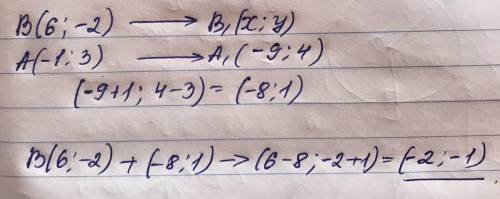 B(6; -2) ⟶ B₁(x; y)
A(-1; 3) ⟶ A₁(-9; 4)
(-9+1; 4-3) = (-8; 1)
B(6; -2) + (-8; 1) → (6-8; -2+1) = (-2; -1).